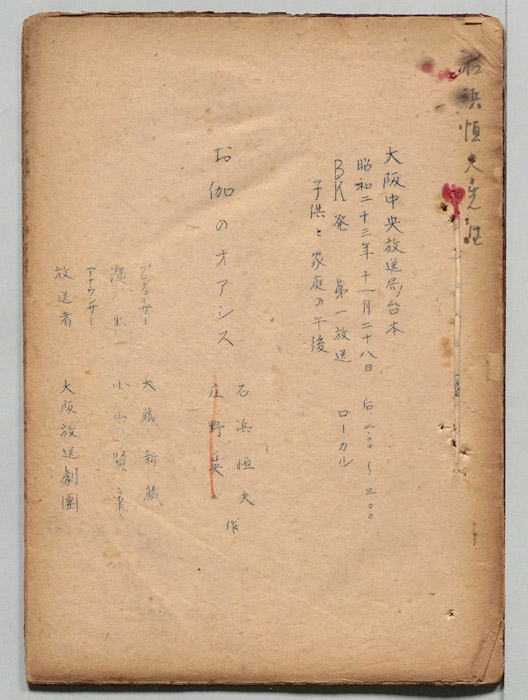 石浜恒夫先生
大阪中央放送局台本
昭和二十三年十一月二十八日 后二.〇〇～三.〇〇
BK発 第一放送 ローカル
子供と家庭の午後
お伽のオアシス
石浜恒夫
庄野英二 作
プロデューサー 大蔵新蔵
演出 小山賢
アナウンサー
放送者 大阪放送劇團